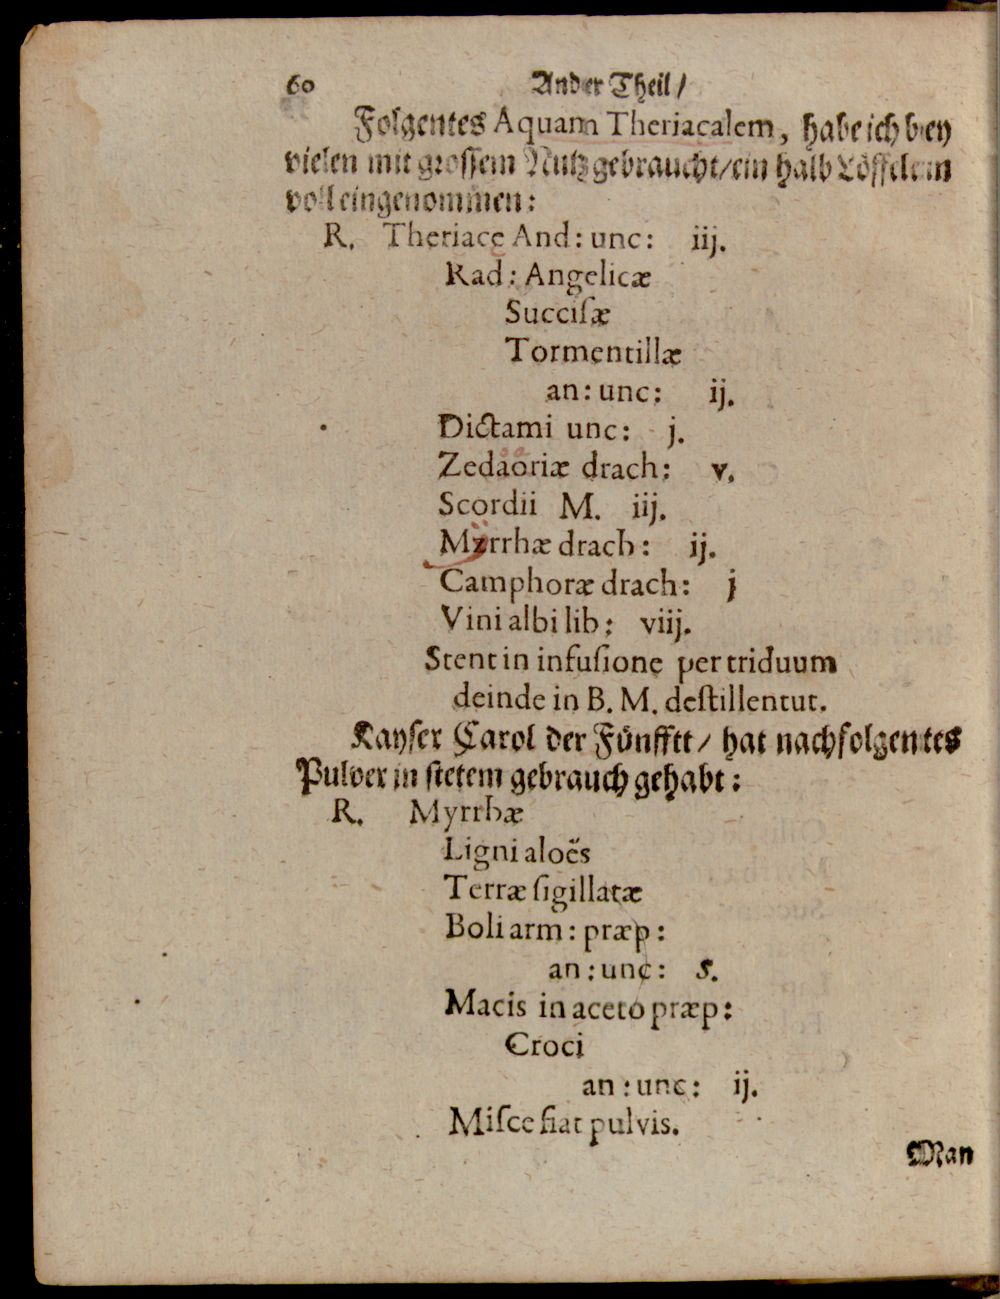 60 Ander Theil/
Folgentes Aquam Theriacalem, habe ich bey
vielen mit grossem Nutz gebraucht/ein halb Löffelein
voll eingenommen:
R. Theriace And: unc: iij.
Rad: Angelicæ
Succiſæ
Tormentillæ
an: unc: ij.
Dictami unc: j.
Zedaoriæ drach: v.
Scordii M. iij.
Myrrhæ drach: ij.
Camphoræ drach: j
Vini albi lib: viij.
Stent in infuſione per triduum
deinde in B. M. deſtillentut.
Kayser Carol der Fünfftt/ hat nachfolgentes
Pulver in stetem gebrauch gehabt:
R. Myrrhæ
Ligni aloës
Terræ ſigillatæ
Boli arm: præp:
an: unc: s.
Macis in aceto præp:
Croci
an: unc: ij.
Miſce fiat pulvis.
Man